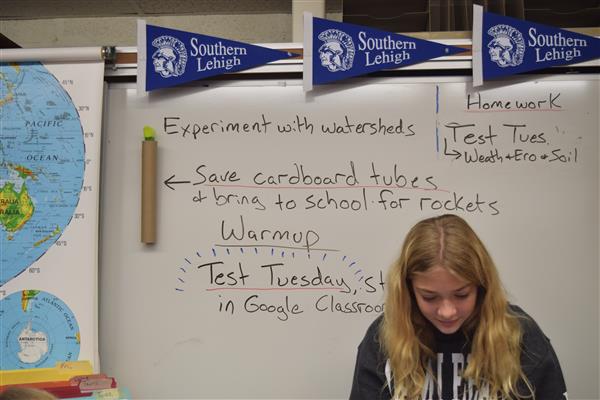 Southern
Lehigh
Southern
Lehigh
Southern
Lehigh
Homework
Test Tues.
↳ Weath + Ero + Soil
Experiment with watersheds
← Save cardboard tubes
+ bring to school for rockets
Warmup
Test Tuesday, st
in Google Classroo
PACIFIC
OCEAN
RALIA
ATLANTIC OCEAN
ANTARCTICA